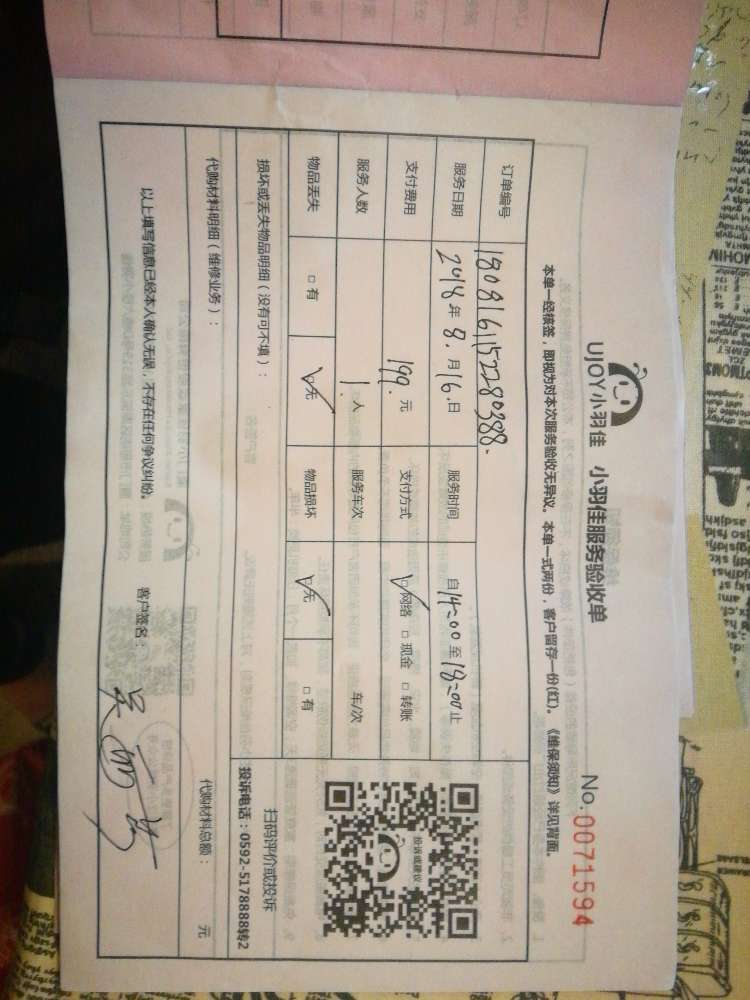 UJOY小羽佳 小羽佳服务验收单
No. 0071594
本单一经核签，即视为对本次服务验收无异议。本单一式两份，客户留存一份(红)。《维保须知》详见背面。
订单编号 1808161152280388.
服务日期 2018年8.月16.日 服务时间 自14:00至18:00止
支付费用 199.元 支付方式 ☑网络 □现金 □转账
服务人数 1.人 服务车次 车/次
物品丢失 □有 ☑无 物品损坏 ☑无 □有
投诉或建议
扫码评价或投诉
投诉电话：0592-5178888转2
损坏或丢失物品明细（没有可不填）：
代购材料明细（维修业务）： 代购材料总额： 元
以上填写信息已经本人确认无误，不存在任何争议纠纷。 客户签名：